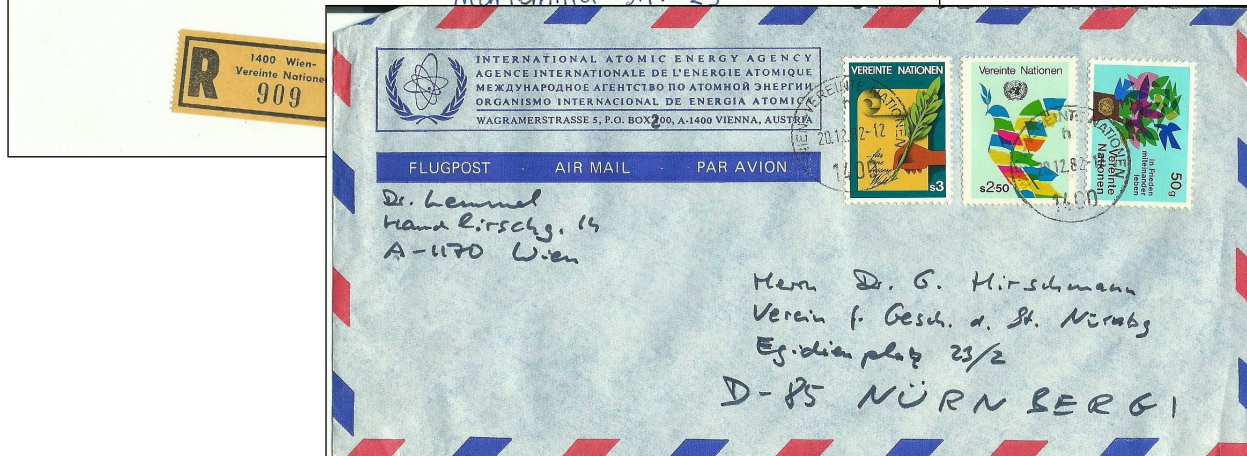 R
1400 Wien-
Vereinte Nationen
909
INTERNATIONAL ATOMIC ENERGY AGENCY
AGENCE INTERNATIONALE DE L'ENERGIE ATOMIQUE
МЕЖДУНАРОДНОЕ АГЕНТСТВО ПО АТОМНОЙ ЭНЕРГИИ
ORGANISMO INTERNACIONAL DE ENERGIA ATOMICA
WAGRAMERSTRASSE 5, P.O. BOX 200, A-1400 VIENNA, AUSTRIA
FLUGPOST AIR MAIL PAR AVION
VEREINTE NATIONEN
s3
Vereinte Nationen
s2·50
in Frieden
miteinander
leben
Vereinte
Nationen
50g
VEREINTE NATIONEN
20.12.82-12
1400
Dr. Lemmel
A-1170 Wien
Herrn Dr. G. Hirschmann
Verein f. Gesch. d. St. Nürnbg
Egidienplatz 23/2
D-85 NÜRNBERG 1